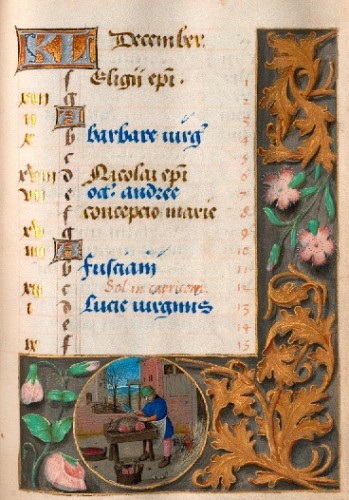 KL December.
f Eligii epi. 1
xiii g 2
ii A 3
x b barbare virg 4
c 5
xviii d Nicolai epi 6
vii e oct. andree 7
f concepcio marie 8
xv g 9
iiii A 10
b fusciani 11
xii c Sol in capricor. 12
i d Lucie virginis 13
e 14
ix f 15